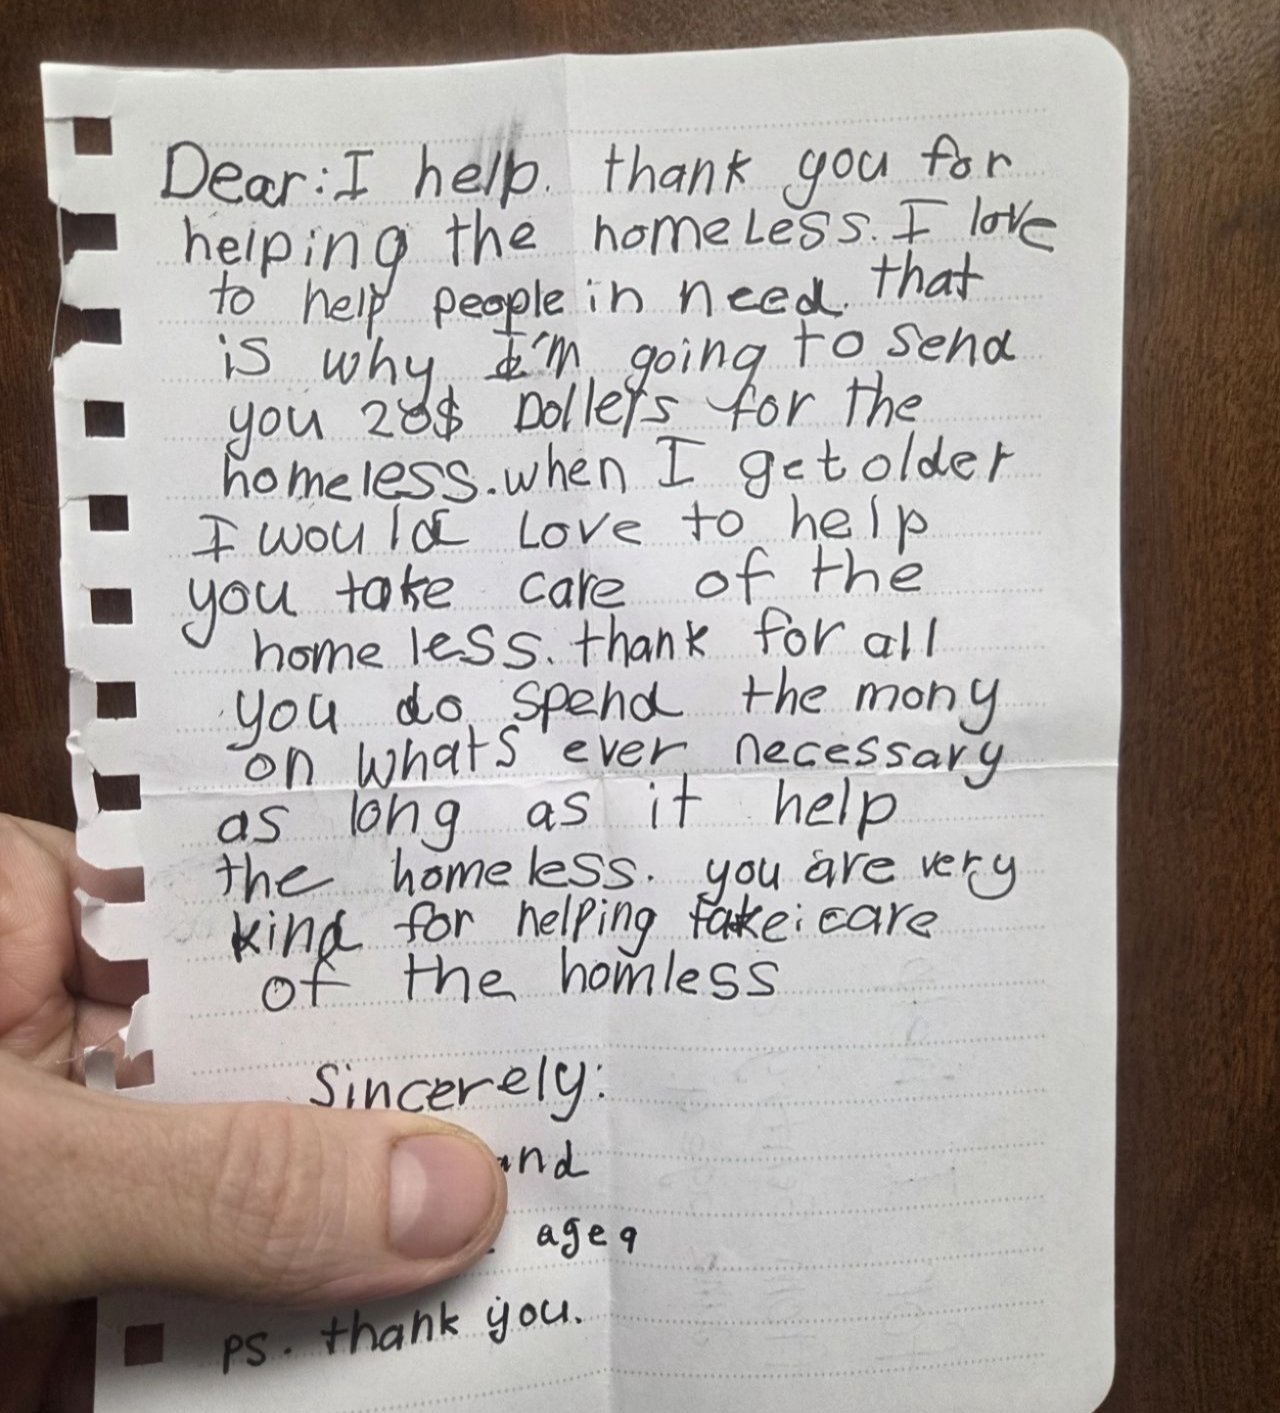 Dear: I help. thank you for
helping the homeless. I love
to help people in need. that
is why I'm going to send
you 20$ Dollers for the
homeless. when I get older
I would love to help
you take care of the
homeless. thank for all
you do spend the mony
on whats ever necessary
as long as it help
the homeless. you are very
kind for helping take care
of the homless
Sincerely:
age 9
ps. thank you.